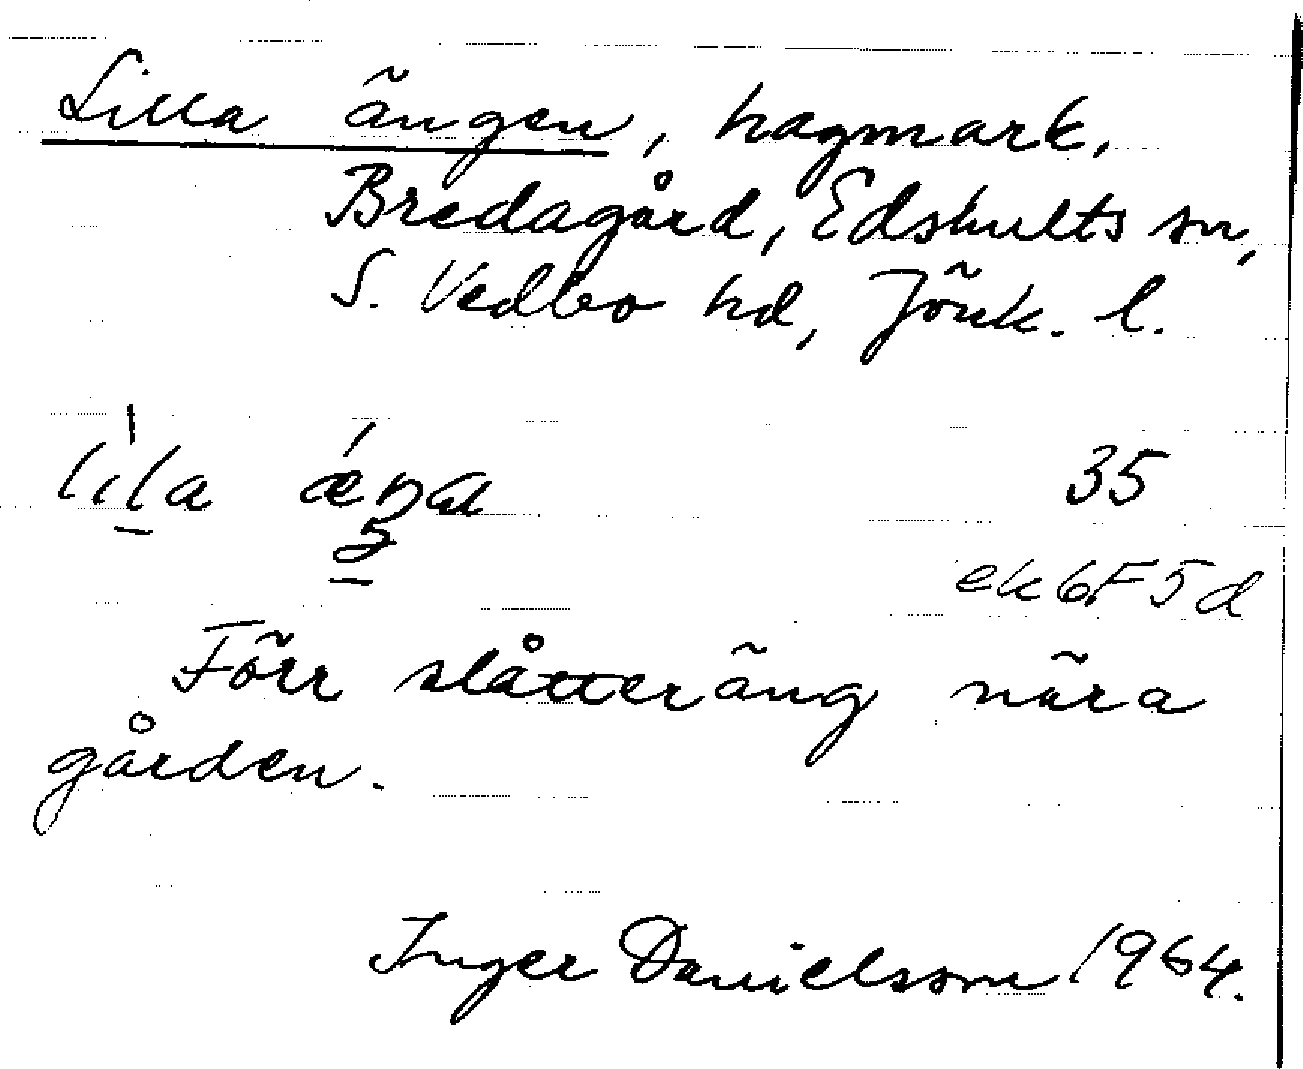 Lilla ängen, hagmark,
Bredagård, Edshults sn,
S. Vedbo hd, Jönk. l.
35
ek 6F5d
Förr slåtteräng nära
gården.
Inger Danielsson 1964.